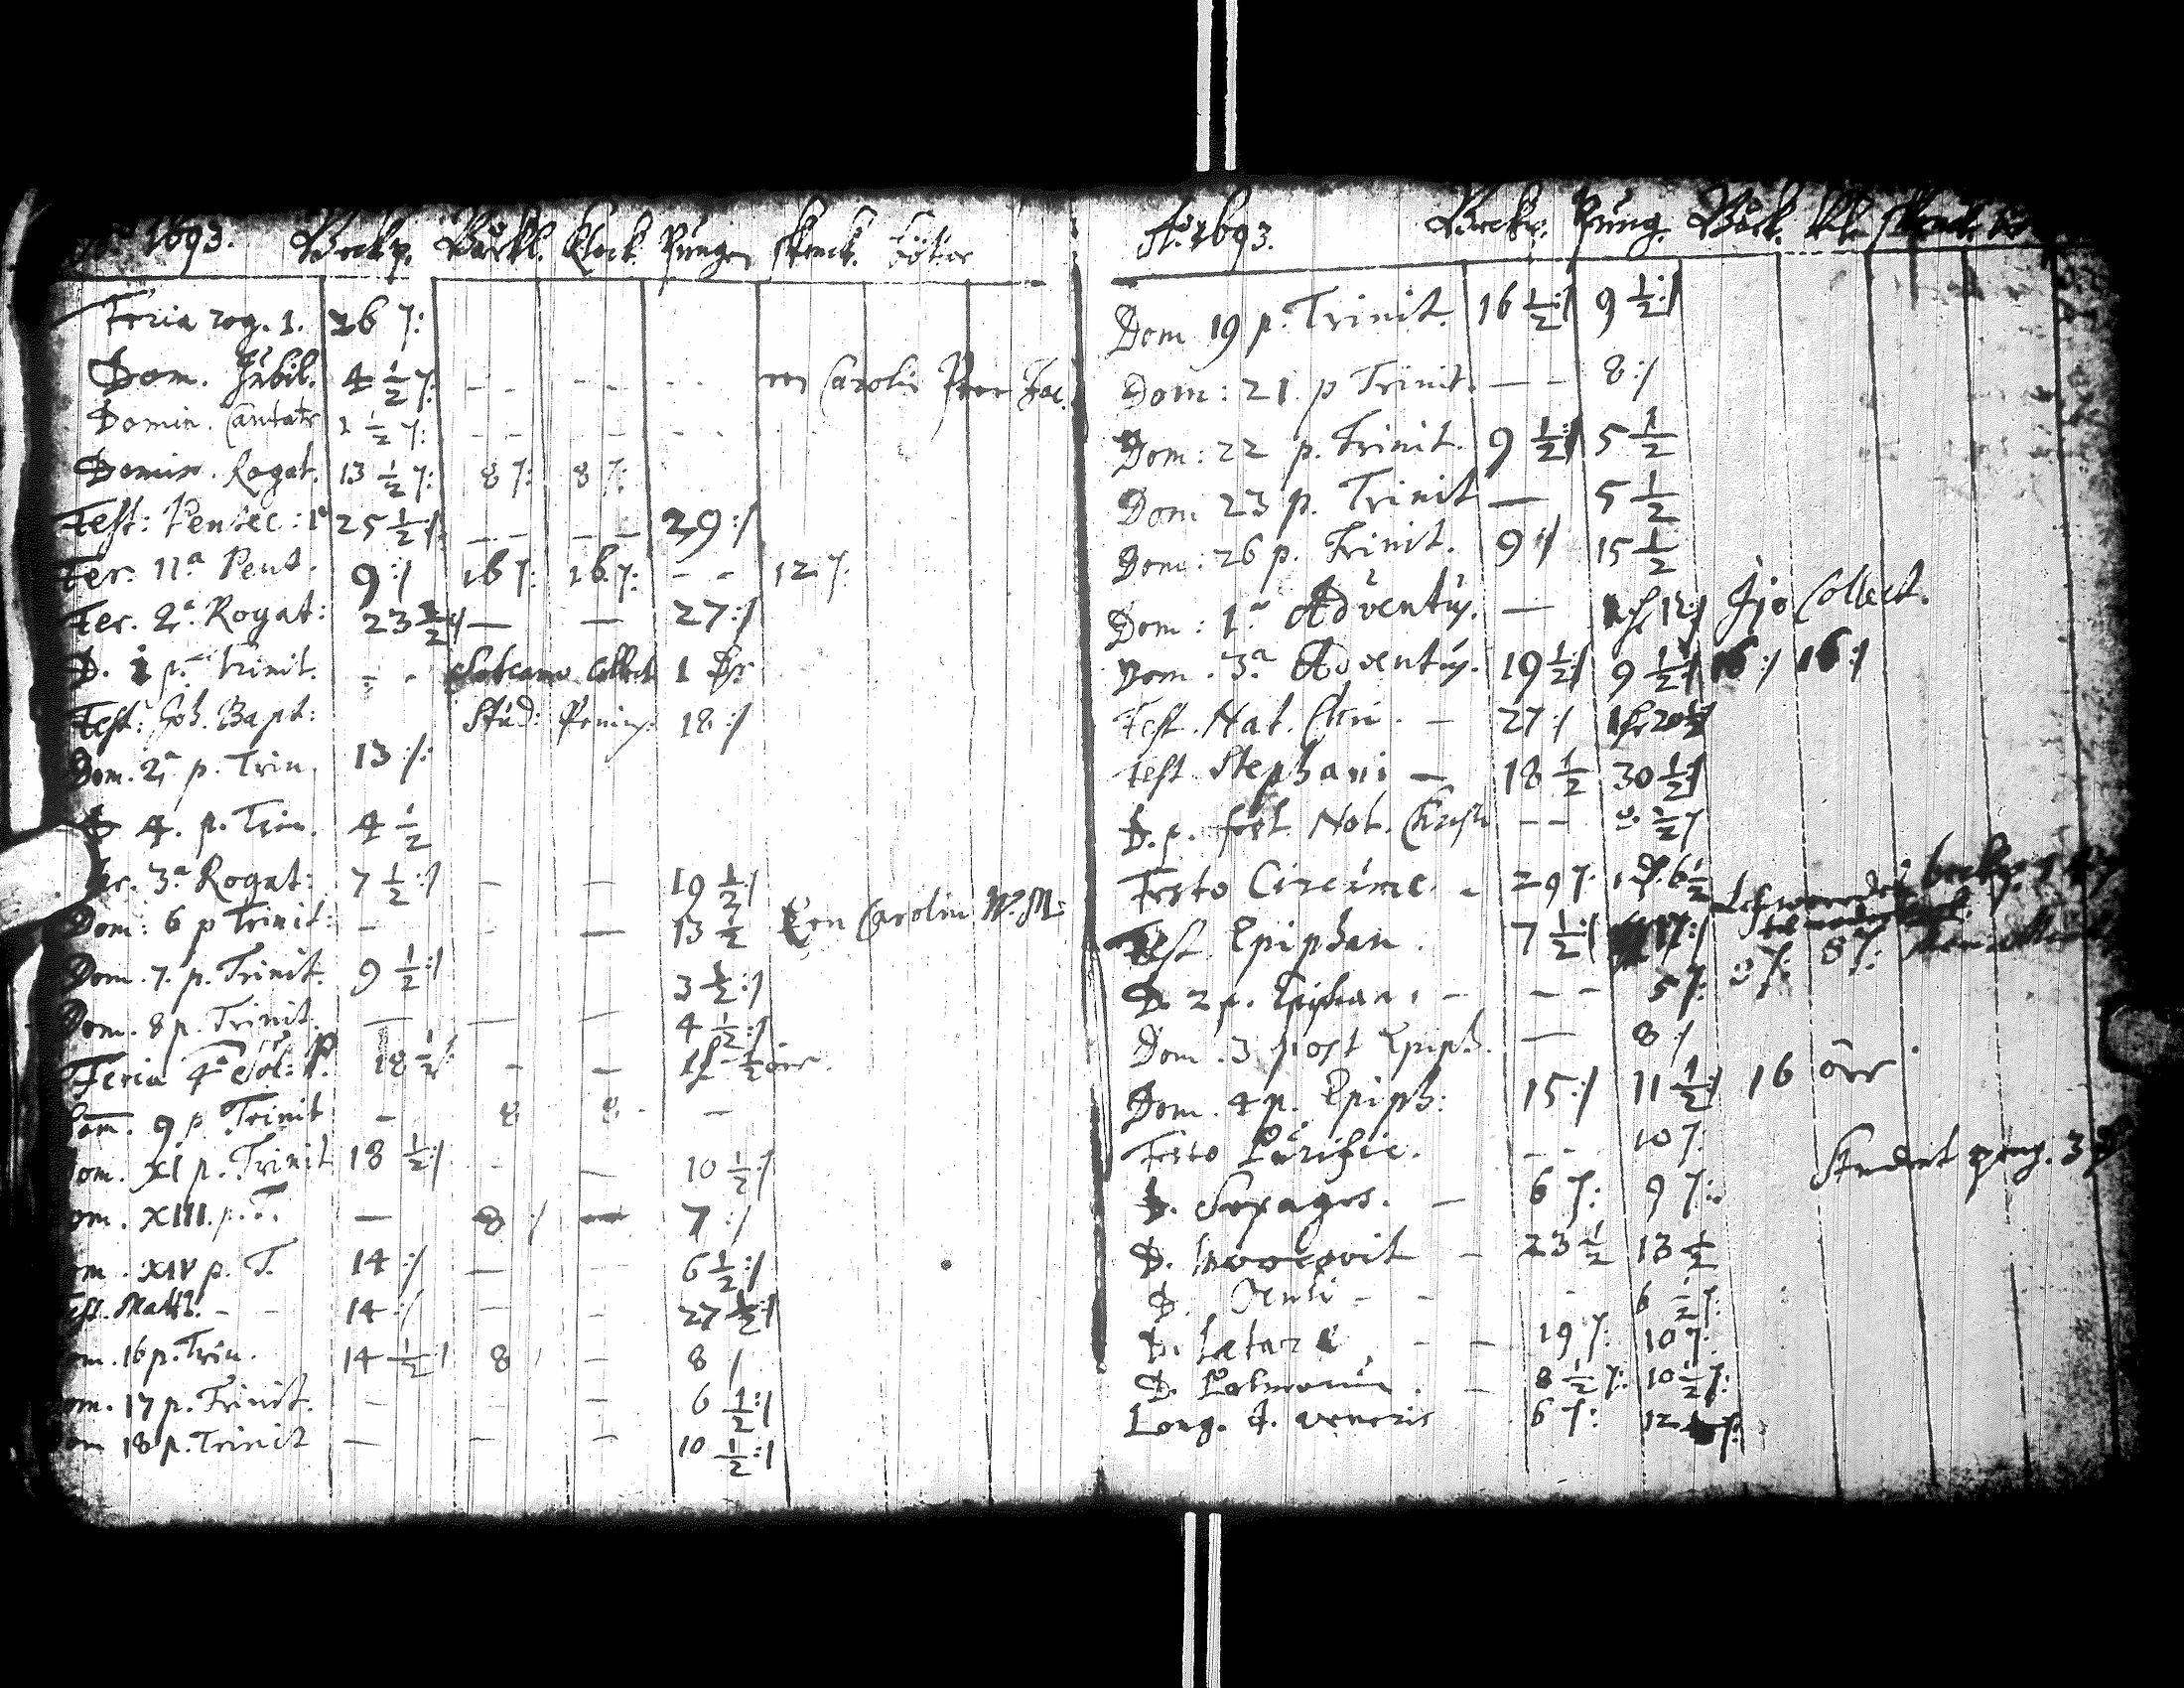 1693. Beck p. Bårkl. Clock. Pungen skenck. Böter
Feria rog. 1. 26 :/
Dom. Jubil. 4 1/2 :/ - - - - - - en Carolin Pter Jac.
Domin. Cantate 2 1/2 :/ - - - - - -
Domin. Rogat. 13 1/2 :/ 8 :/ 8 :/
Fest: Pentec: 1a 25 1/2 :/ - - - - 29 :/
Fer. 11a Pent. 9 :/ 16 :/ 16 :/ - - 12 :/
Fer. 2a Rogat: 23 1/2 :/ — — 27 :/
D. 1 p. trinit. - - Collect 1 dr
Fest: Joh. Bapt: Stud: Pening: 18 :/
Dom. 2a p. Trin. 13 :/:
D 4. p. Trin. 4 1/2
Fer. 3a Rogat: 7 1/2 :/ - - 19 1/2 :/
Dom: 6 p Trinit: - - — 13 1/2 Een Carolin N. M:
Dom. 7. p. Trinit. 9 1/2 :/ 3 1/2 :/
Dom. 8 p. Trinit. — — — 4 1/2 :/
Feria 4a 18 1/2 :/ - — 1 1/2 örr.
Dom. 9 p Trinit - 8 8 - —
Dom. XI p. Trinit 18 1/2 :/ - — 10 1/2 :/
Dom. XIII. p. T. — 8 :/ — 7 :/
Dom. XIV p. T. 14 :/ — - 6 1/2 :/
Fest. Matth. - - 14 :/ — - 27 1/2 :/
Dom. 16 p. Trin. 14 1/2 :/ 8 — 8 /
Dom. 17 p. Trinit. - - — 6 1/2 :/
Dom 18 p. Trinit — - — 10 1/2 :/
Ao. 1693. Beckp. Pung. Bårk. Kl. skenk.
Dom 19 p. Trinit. 16 1/2 :/ 9 1/2 :/
Dom: 21. p Trinit. — - 8 :/
Dom: 22 p. Trinit. 9 1/2 :/ 5 1/2
Dom 23 p. Trinit — 5 1/2
Dom: 26 p. Trinit. 9 :/ 15 1/2
Dom: 1a Adventus. — 12 :/ Collect.
Dom. 3a Adventus. 19 1/2 :/ 9 1/2 :/ 16 :/ 16 :/
Fest. Nat. Chri. — 27 :/ 20 1/2
Fest Stephani — 18 1/2 30 1/2 :/
D. p. fest. Nat. Christi - - 8 1/2 :/
Festo Circumc. - 29 :/ 1 d. 6 1/2
Fest Epiphan. 7 1/2 :/ 17 :/
D. 2 p. Epiphan. - - - 5 :/ 8 :/ 8 :/
Dom. 3 post Epiph. — 8 :/
Dom. 4 p. Epiph: 15 :/ 11 1/2 :/ 16 örr
Festo Purific. - - 10 :/
D. Sexages. — 6 :/ 9 :/ Student peng. 3
D. Invocavit — 23 1/2 13 1/2
D. Oculi - - - 6 1/2 :/
D. Letare - - 19 :/ 10 :/
D. Palmarum. — 8 1/2 :/ 10 1/2 :/
Long. d. veneris 6 :/ 12